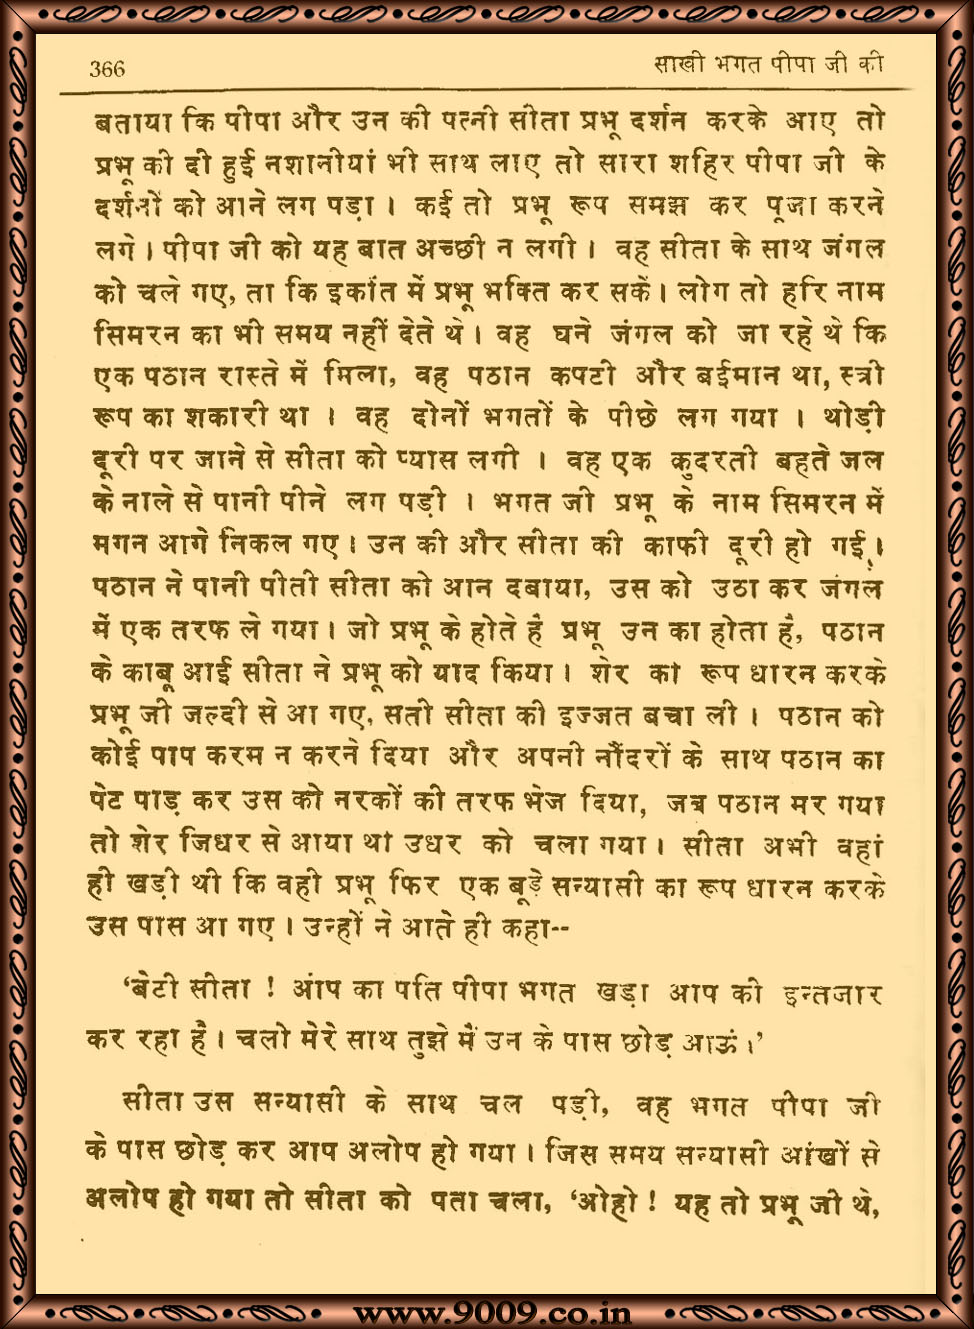 366
साखी भगत पीपा जी की
बताया कि पीपा और उन की पत्नी सीता प्रभू दर्शन करके आए तो
प्रभू की दी हुई नशानीयां भी साथ लाए तो सारा शहिर पीपा जी के
दर्शनों को आने लग पड़ा । कई तो प्रभू रूप समझ कर पूजा करने
लगे । पीपा जी को यह बात अच्छी न लगी । वह सीता के साथ जंगल
को चले गए, ता कि इकांत में प्रभू भक्ति कर सकें । लोग तो हरि नाम
सिमरन का भी समय नहीं देते थे । वह घने जंगल को जा रहे थे कि
एक पठान रास्ते में मिला, वह पठान कपटी और बईमान था, स्त्री
रूप का शकारी था । वह दोनों भगतों के पीछे लग गया । थोड़ी
दूरी पर जाने से सीता को प्यास लगी । वह एक कुदरती बहते जल
के नाले से पानी पीने लग पड़ी । भगत जी प्रभू के नाम सिमरन में
मगन आगे निकल गए । उन की और सीता की काफी दूरी हो गई ।
पठान ने पानी पीती सीता को आन दबाया, उस को उठा कर जंगल
में एक तरफ ले गया । जो प्रभू के होते है प्रभू उन का होता है, पठान
के काबू आई सीता ने प्रभू को याद किया । शेर का रूप धारन करके
प्रभू जी जल्दी से आ गए, सती सीता की इज्जत बचा ली । पठान को
कोई पाप करम न करने दिया और अपनी नौंदरों के साथ पठान का
पेट पाड़ कर उस को नरकों की तरफ भेज दिया, जब पठान मर गया
तो शेर जिधर से आया था उधर को चला गया । सीता अभी वहां
ही खड़ी थी कि वही प्रभू फिर एक बूड़े सन्यासी का रूप धारन करके
उस पास आ गए । उन्हों ने आते ही कहा--
‘बेटी सीता ! आंप का पति पीपा भगत खड़ा आप की इन्तजार
कर रहा है । चलो मेरे साथ तुझे मैं उन के पास छोड़ आऊं ।’
सीता उस सन्यासी के साथ चल पड़ी, वह भगत पीपा जी
के पास छोड़ कर आप अलोप हो गया । जिस समय सन्यासी आंखों से
अलोप हो गया तो सीता को पता चला, ‘ओहो ! यह तो प्रभू जी थे,
www.9009.co.in